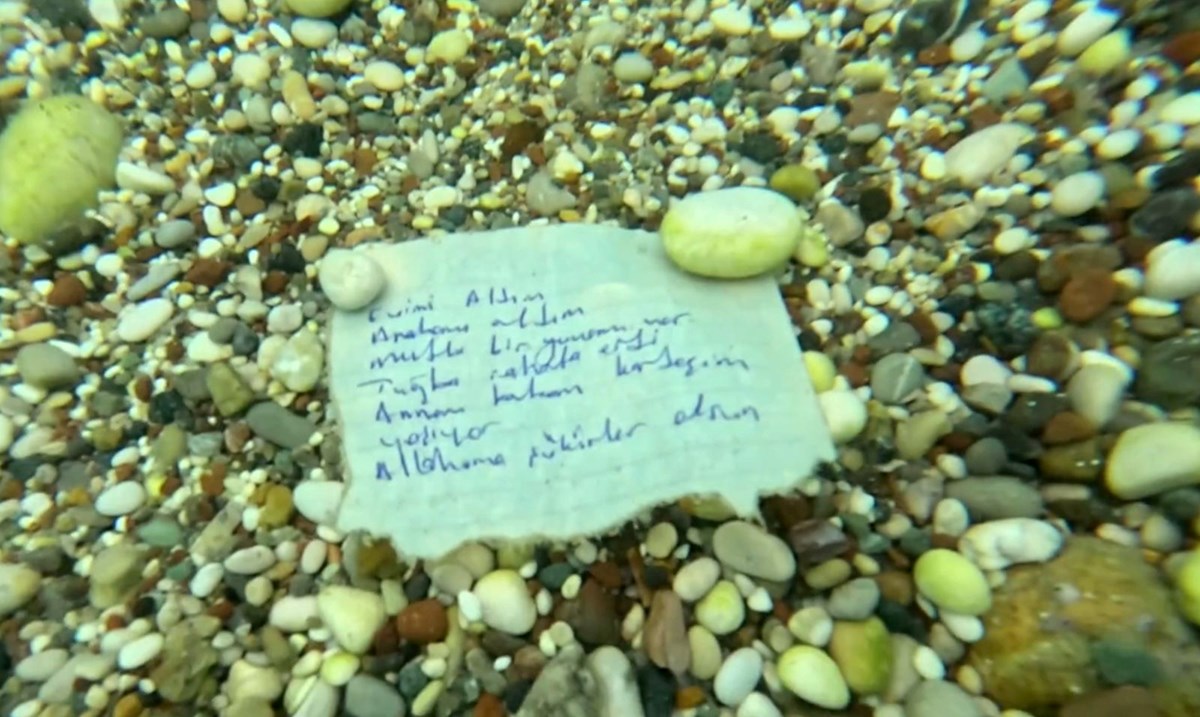 Evimi Aldım
Arabamı aldım
mutlu bir yuvamız var
Tuğba rahata erdi
Annem babam kardeşim
yaşıyor
Allahıma şükürler olsun